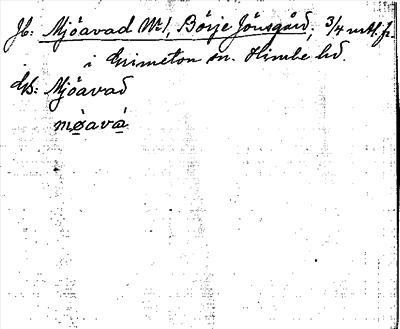 Jb: Mjöavad Nr 1, Börje Jönsgård, 3/4 mtl. fr.
i Grimeton sn. Himle hd.
Ut: Mjöavad
mø̀avà